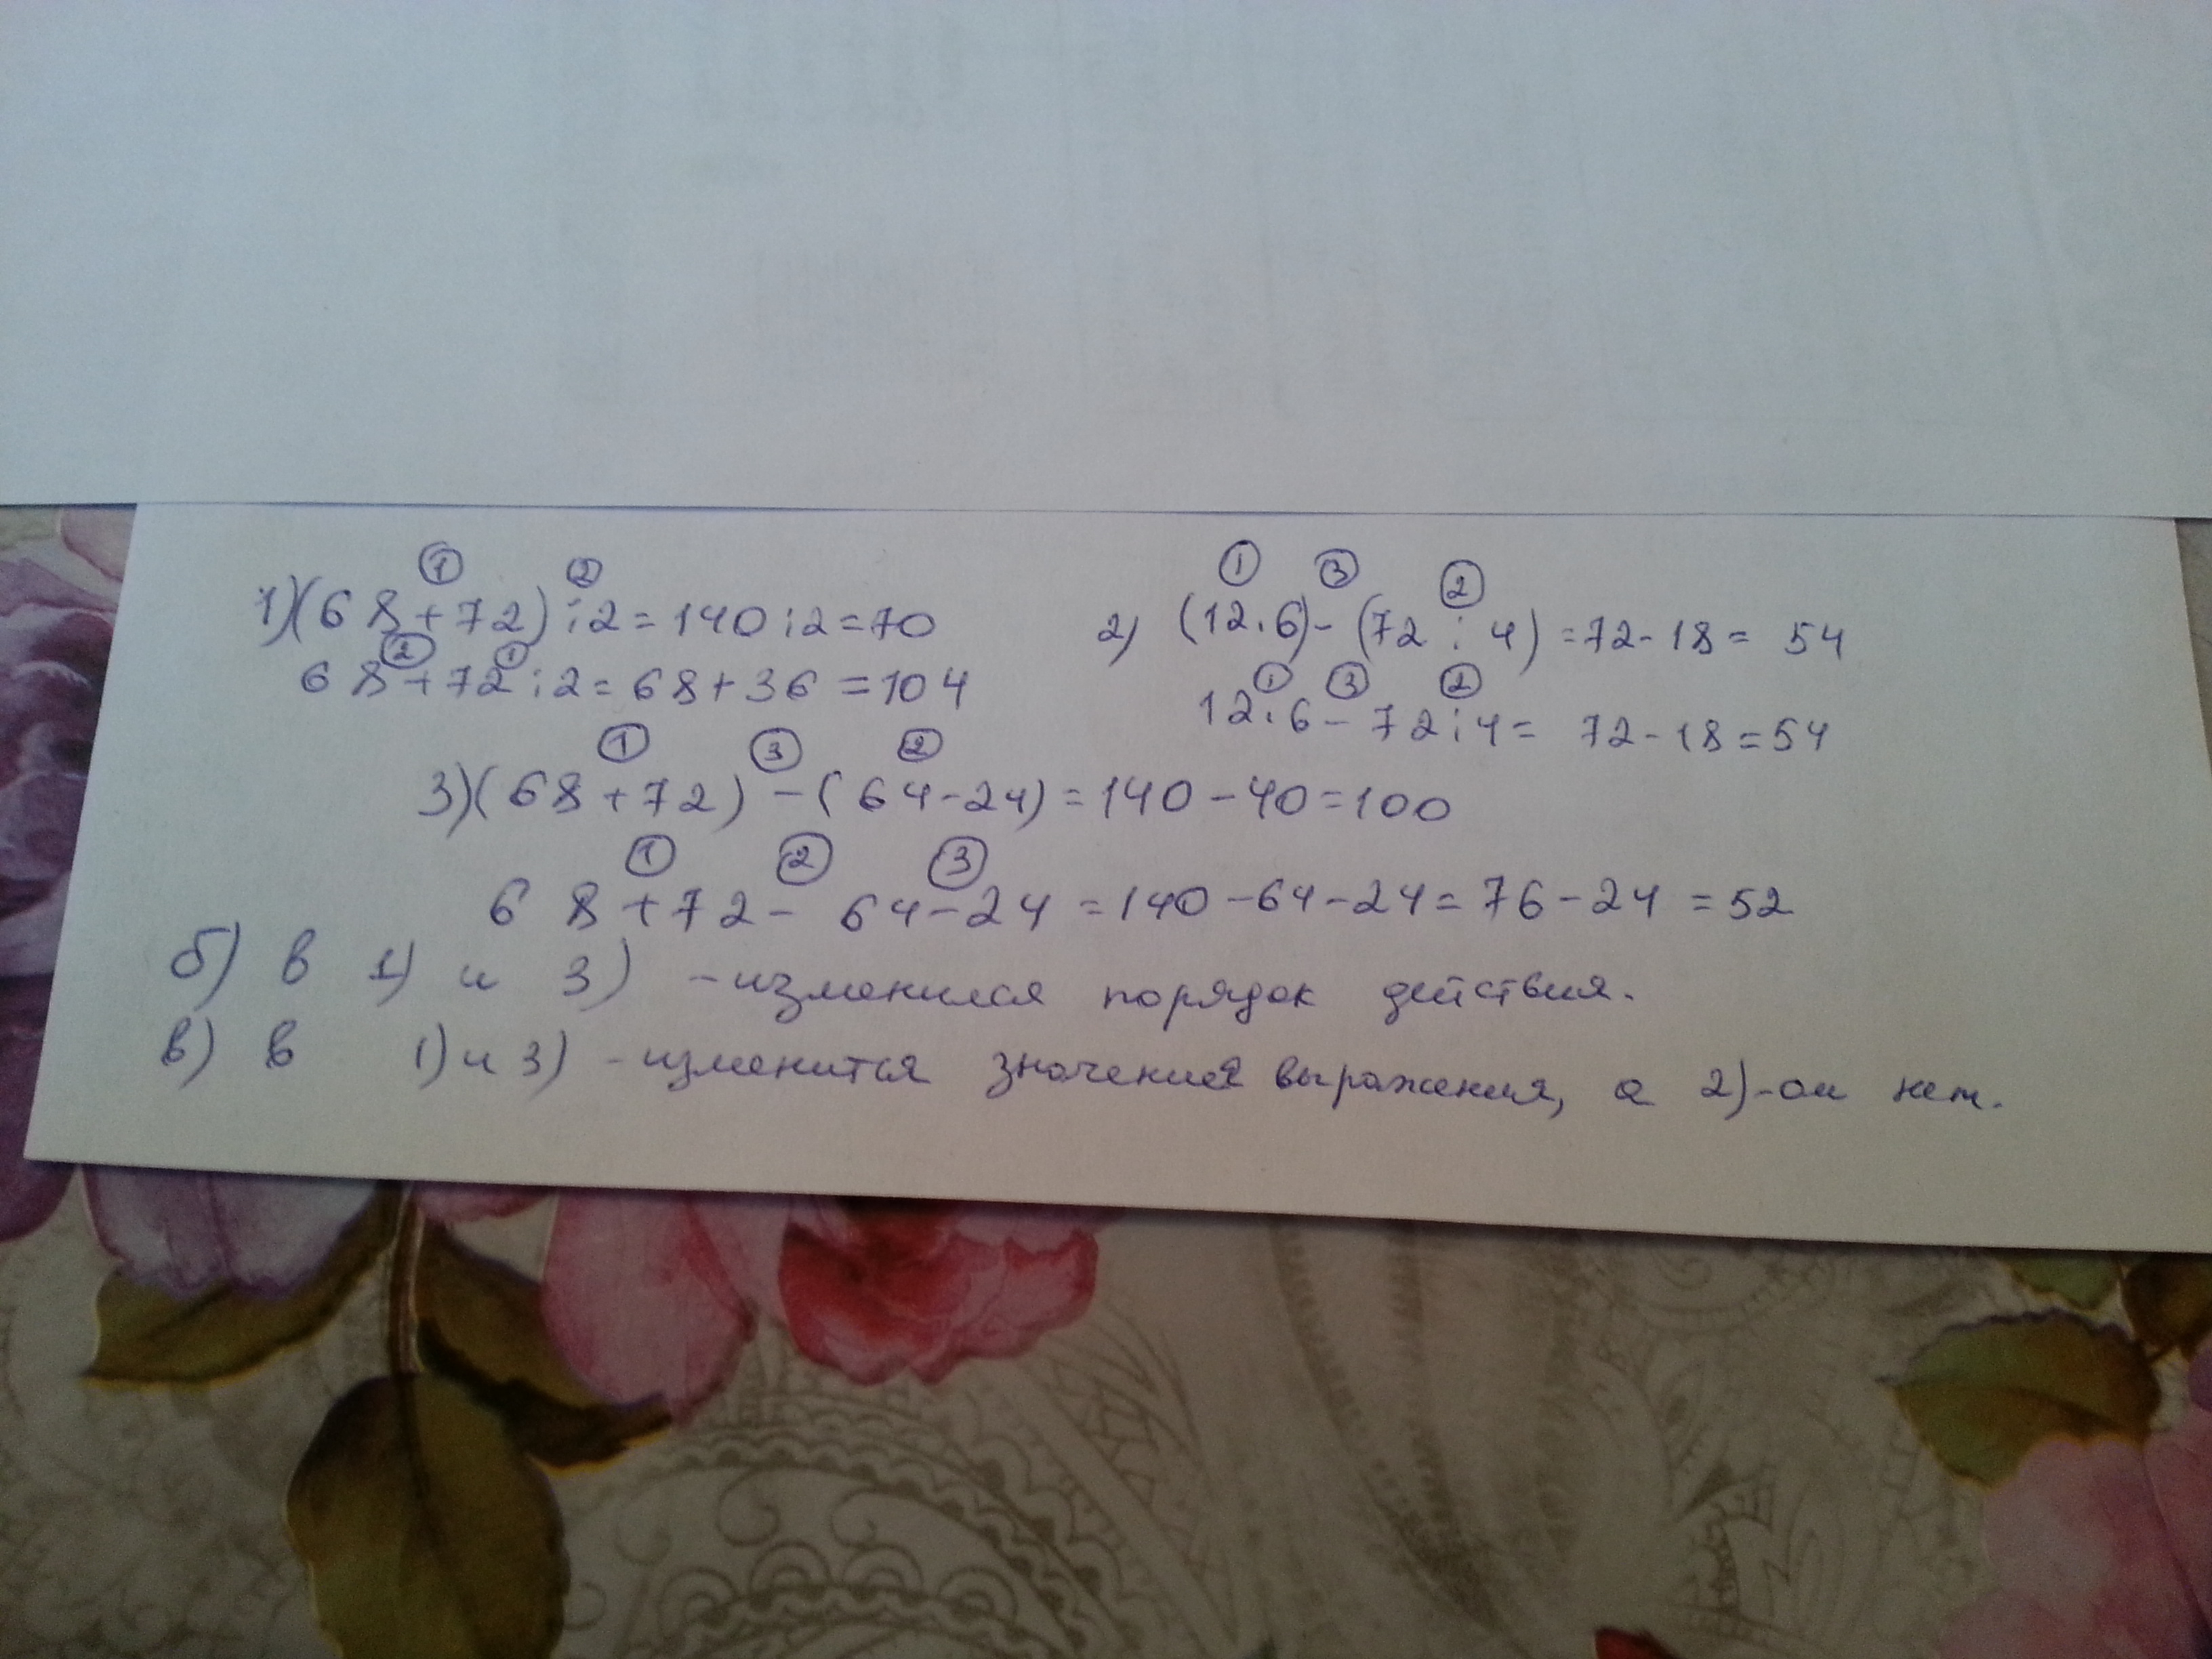 1) (68+72):2=140:2=70
68+72:2=68+36=104
2) (12·6)-(72:4)=72-18=54
12·6-72:4=72-18=54
3) (68+72)-(64-24)=140-40=100
68+72-64-24=140-64-24=76-24=52
б) в 1) и 3) -изменился порядок действия.
в) в 1) и 3) -изменится значение выражения, а 2)-ом нет.